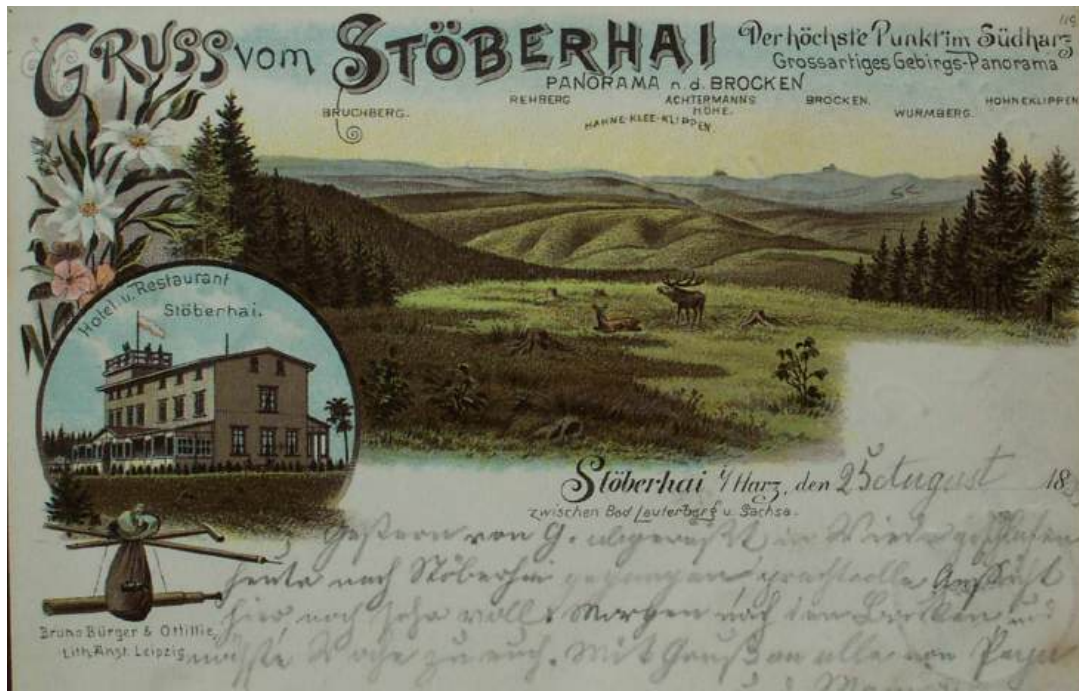 GRUSS vom STÖBERHAI
Der höchste Punkt im Südharz
Grossartiges Gebirgs-Panorama
PANORAMA n. d. BROCKEN
BRUCHBERG.
REHBERG
HAHNE-KLEE-KLIPPEN.
ACHTERMANNS
HÖHE.
BROCKEN.
WURMBERG.
HOHNEKLIPPEN
Hotel u. Restaurant
Stöberhai.
Stöberhai i/Harz, den 25 August 18
zwischen Bad Lauterberg u. Sachsa.
Gestern von G. abgereist in Wieda geschlafen
heute nach Stöberhai gegangen prachtvolle Aussicht
hier noch sehr voll. Morgen nach dem Brocken und
nächste Woche zu euch. Mit Gruß an alle von Papa
Bruno Bürger & Ottillie,
Lith. Anst. Leipzig